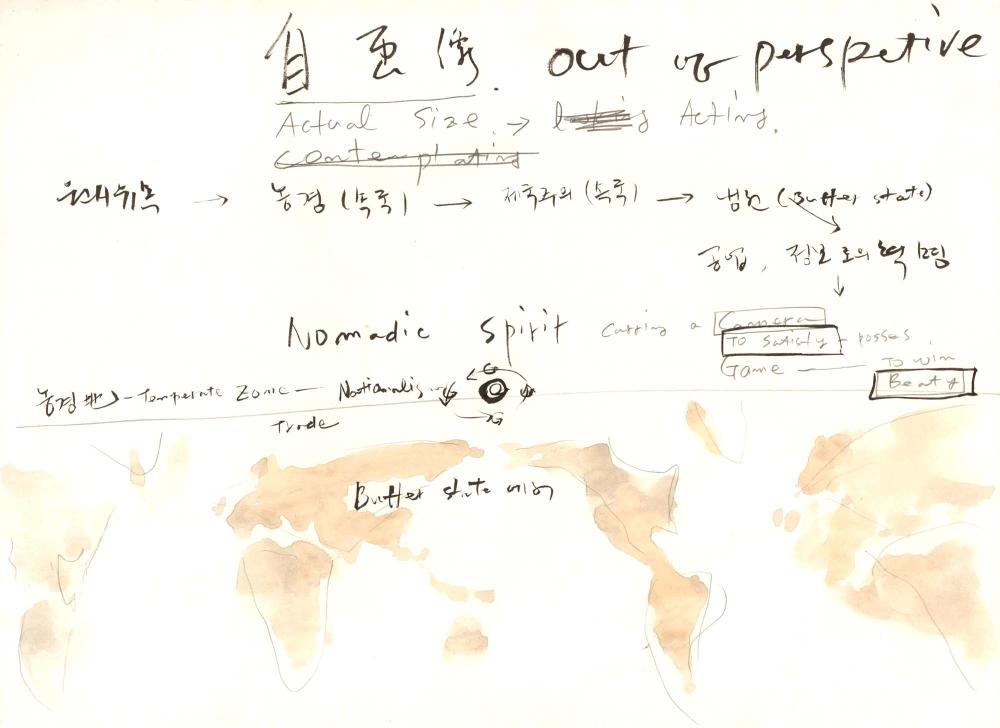 自画像. out of perspetive
Actual Size. → Acting.
Contemplating
→ 농경 (속죽) → 제국주의 (속죽) → 냉전 (Buffer state)
공업, 정보로의
Nomadic Spirit Carring a Camera
TO Satisfy - posses.
Game — TO win
농경 - Temperate Zone — Nationalis
Beaty
trade
Buffer state